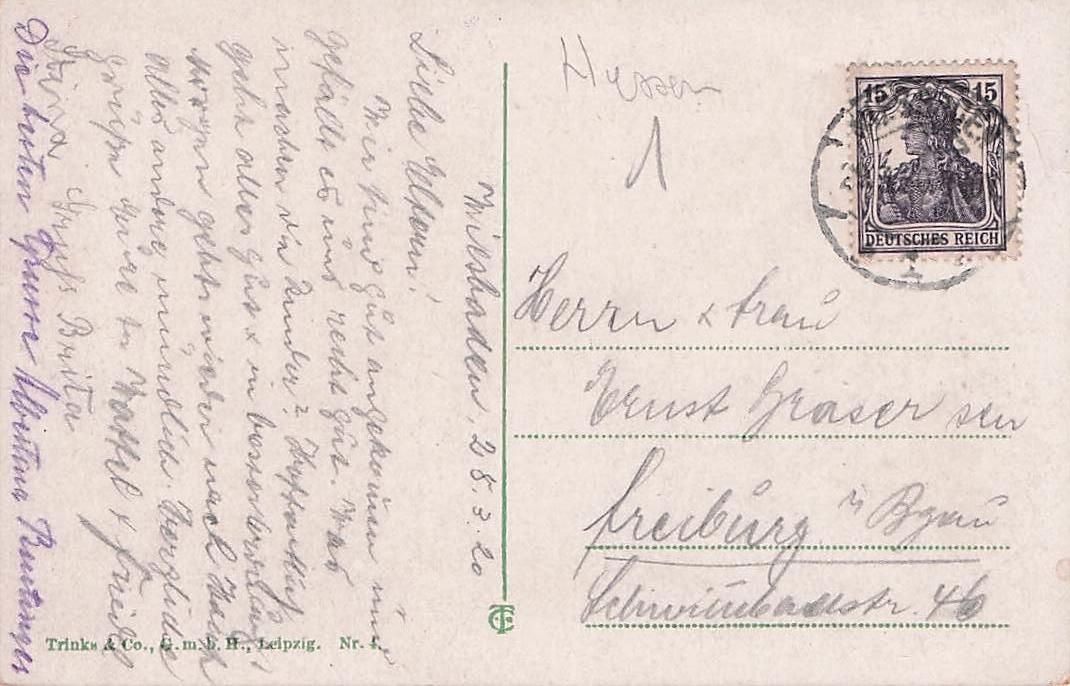 Wiesbaden, 28.3.20
Liebe Eltern!
Wir sind gut angekommen und
gefällt es uns recht gut. Was
machen die Kinder? Hoffentlich
geht alles gut & in
Morgen geht's wieder nach
alles andere mündlich. Herzliche
Grüsse
Gruss Brita
Die besten Grüsse Albertina
Hessen
1
15 15
DEUTSCHES REICH
Herrn & Frau
Ernst Graser sen
Freiburg i/ Bgau
Schwimmbadstr. 46
Trinks & Co., G. m. b. H., Leipzig. Nr. 4.